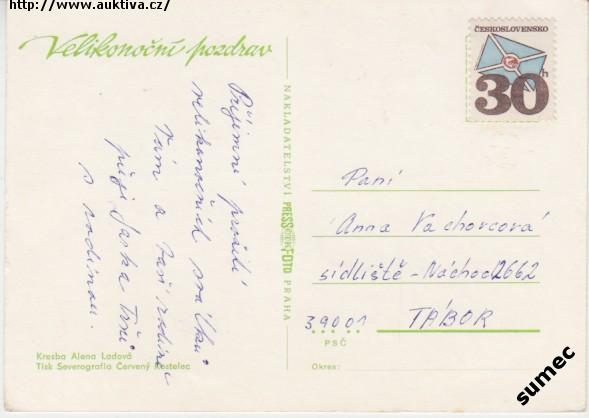 http://www.auktiva.cz/
Velikonoční pozdrav
Příjemné prožití
velikonočních svátků
Vám a Vaší rodině
přejí Jarka
s rodinou.
Kresba Alena Ladová
Tisk Severografia Červený Kostelec
NAKLADATELSTVÍ PRESSFOTO PRAHA
ČESKOSLOVENSKO
30h
Paní
Anna Vachovcová
sídliště - Náchod 2662
39001 TÁBOR
PSČ
Okres:
sumec